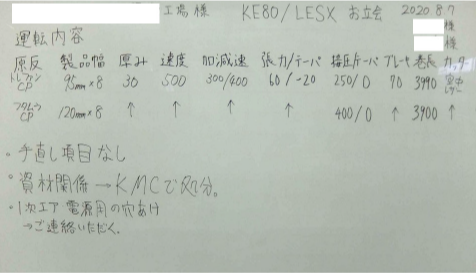 工場様 KE80/LESX お立会 2020 8.7
様
様
運転内容
原反 製品幅 厚み 速度 加減速 張力/テーパ 接圧/テーパ ブレーキ 巻長 カッター
トレファン CP 95mm×8 30 500 300/400 60/-20 250/0 70 3990
フタムラ CP 120mm×8 ↑ ↑ ↑ ↑ 400/0 ↑ 3900 ↑
・手直し項目なし
・資材関係→KMCで処分。
・1次エア 電源用の穴あけ
→ご連絡いただく。